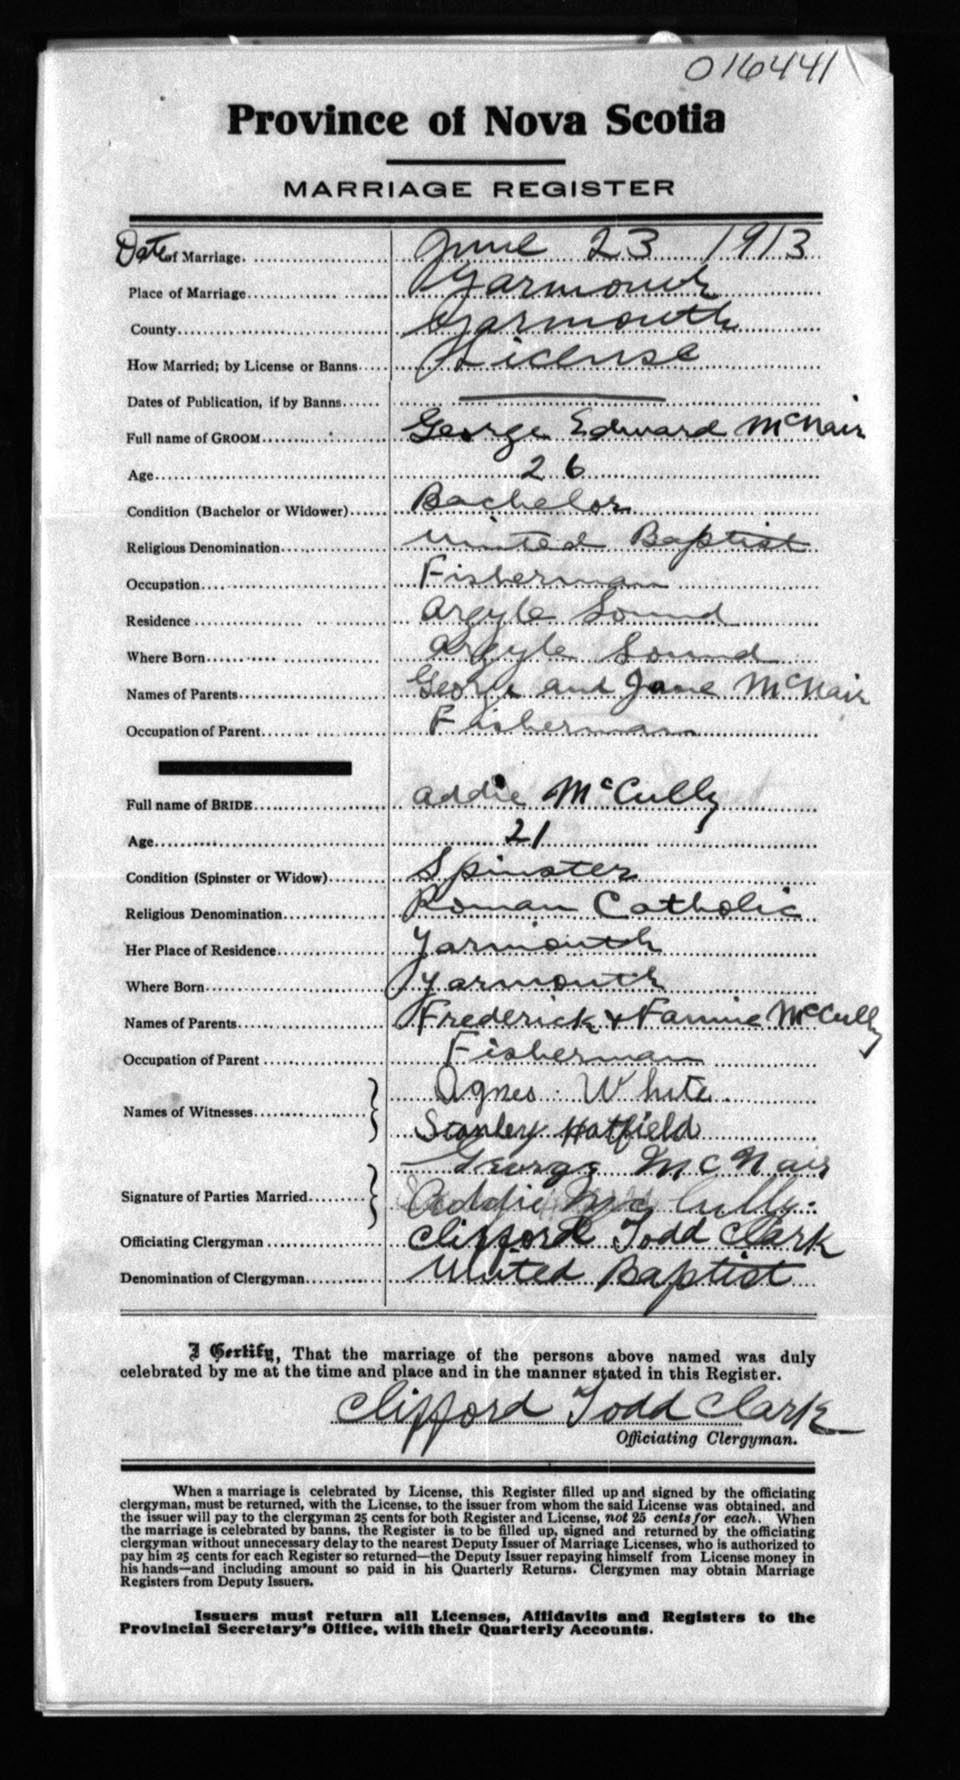 016441
Province of Nova Scotia
MARRIAGE REGISTER
Date of Marriage. June 23 1913
Place of Marriage Yarmouth
County Yarmouth
How Married; by License or Banns License
Dates of Publication, if by Banns
Full name of GROOM George Edward McNair
Age 26
Condition (Bachelor or Widower) Bachelor
Religious Denomination United Baptist
Occupation Fisherman
Residence Argyle Sound
Where Born Argyle Sound
Names of Parents George and Jane McNair
Occupation of Parent Fisherman
Full name of BRIDE Addie McCully
Age 21
Condition (Spinster or Widow) Spinster
Religious Denomination Roman Catholic
Her Place of Residence Yarmouth
Where Born Yarmouth
Names of Parents Frederick & Fannie McCully
Occupation of Parent Fisherman
Agnes White
Names of Witnesses
Stanley Hatfield
George McNair
Signature of Parties Married
Addie McCully
Officiating Clergyman Clifford Todd Clark
Denomination of Clergyman United Baptist
I Certify, That the marriage of the persons above named was duly
celebrated by me at the time and place and in the manner stated in this Register.
Clifford Todd Clark
Officiating Clergyman.
When a marriage is celebrated by License, this Register filled up and signed by the officiating
clergyman, must be returned, with the License, to the issuer from whom the said License was obtained, and
the issuer will pay to the clergyman 25 cents for both Register and License, not 25 cents for each. When
the marriage is celebrated by banns, the Register is to be filled up, signed and returned by the officiating
clergyman without unnecessary delay to the nearest Deputy Issuer of Marriage Licenses, who is authorized to
pay him 25 cents for each Register so returned—the Deputy Issuer repaying himself from License money in
his hands—and including amount so paid in his Quarterly Returns. Clergymen may obtain Marriage
Registers from Deputy Issuers.
Issuers must return all Licenses, Affidavits and Registers to the
Provincial Secretary's Office, with their Quarterly Accounts.